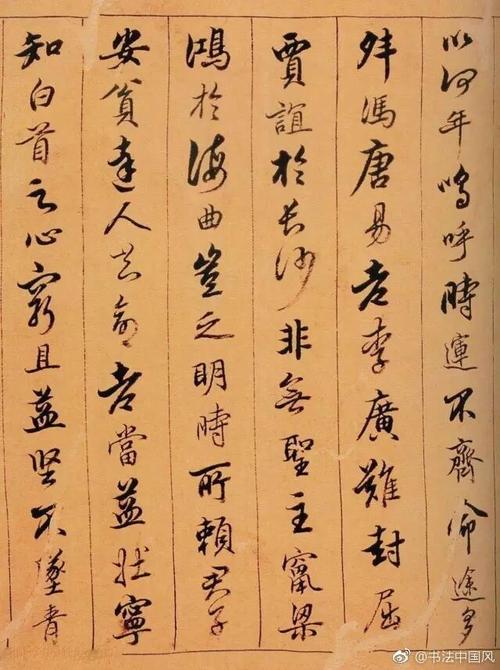 以何年嗚呼時運不齊命途多
舛馮唐易老李廣難封屈
賈誼於長沙非無聖主竄梁
鴻於海曲豈乏明時所賴君子
安貧達人知命老當益壯寧
知白首之心窮且益堅不墜青
@书法中国风